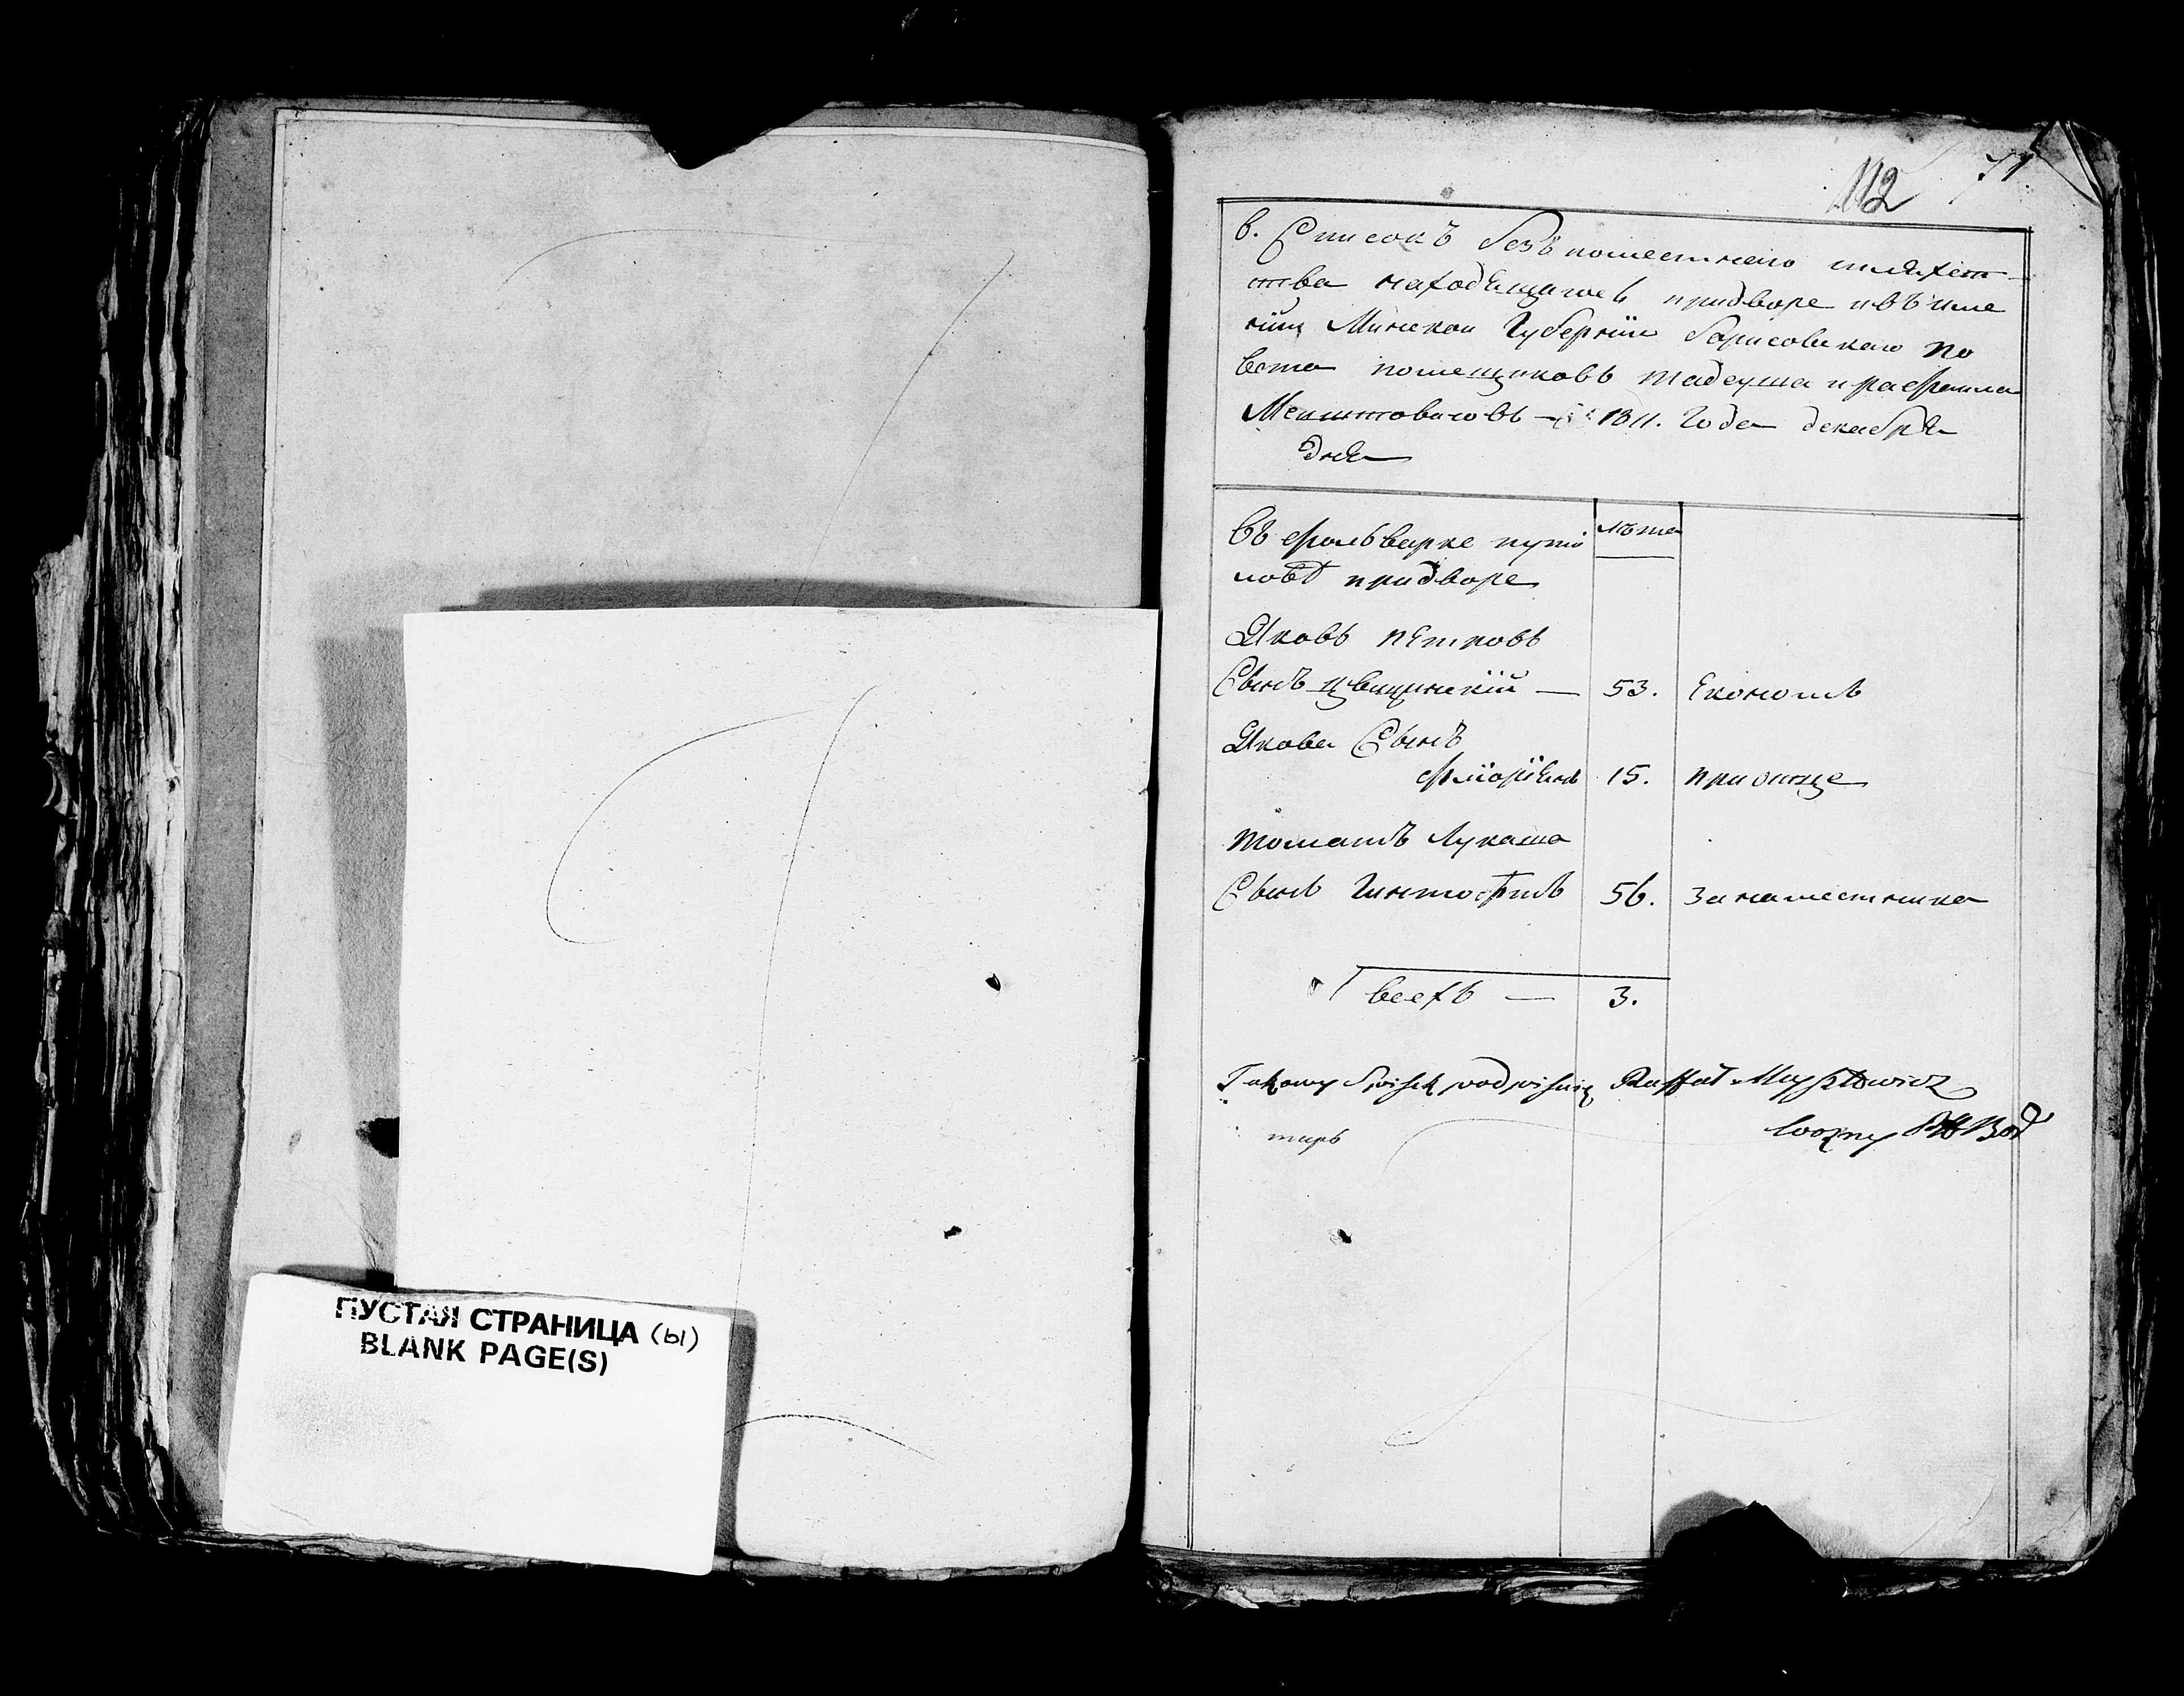 ПУСТАЯ СТРАНИЦА (ы)
BLANK PAGE(S)
112
71
в. Списокъ безъ поместнего шляхет
ства находящигосѣ придворе ивъ име
нии Минскои Губернїи борисовскаго по
вета помещиковъ тадеуша ирафаила
1811. Года декабря
дня
Въ фольварке
придворе
лѣта
Яковъ пЕтровъ
Сынъ 53. Економъ
Якова Сынъ
15. приотце
томашъ Лукаша
Сынъ 56. Занаместника
всехъ — 3.
Takowy Spisek podpisuię Raffał Mysztowicz